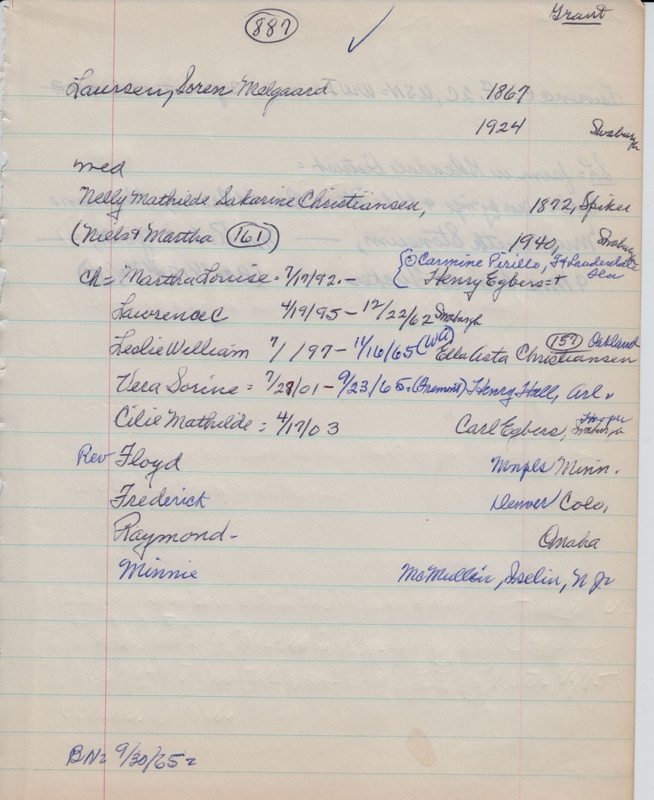 Grant
887 ✓
Laursen, Soren Molgaard 1867
1924 Snyburgh
med
Nelly Mathilde Sakarine Christiansen, 1872, Spiker
(Niels & Martha 161) 1940,
Carmine Pirillo, Ft Lauderdale Fla
Ch = Martha Louise = 7/17/92. - Henry Egbers = +
Lawrence C 4/19/95 - 12/22/62
Leslie William 7/ /97 - 11/16/65 (Wd) Ella Asta Christiansen 157 Oakland
Vera Sorine = 7/27/01 - 9/23/65. (Fremont) Henry Hall, Arl.
Cilie Mathilde = 4/17/03 Carl Egbers, Hooper
Rev Floyd Mnpls Minn.
Frederick Denver Colo,
Raymond - Omaha
Minnie McMullin, Iselin, N J.
BN = 9/30/65 =